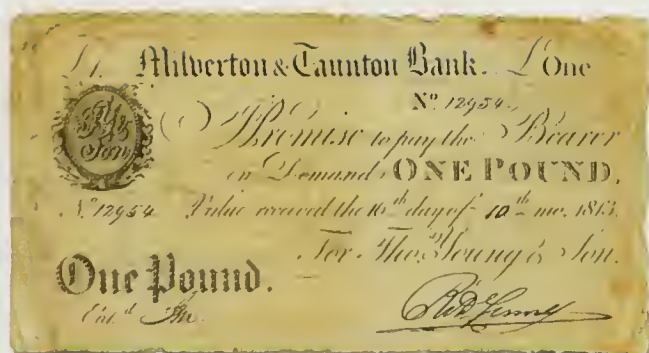 Milverton & Taunton Bank. £ One
No 12954
I Promise to pay the Bearer
on Demand ONE POUND.
No 12954 Value received the 16th day of 10th mo. 1813.
For Thos. Young & Son.
One Pound.
Entd